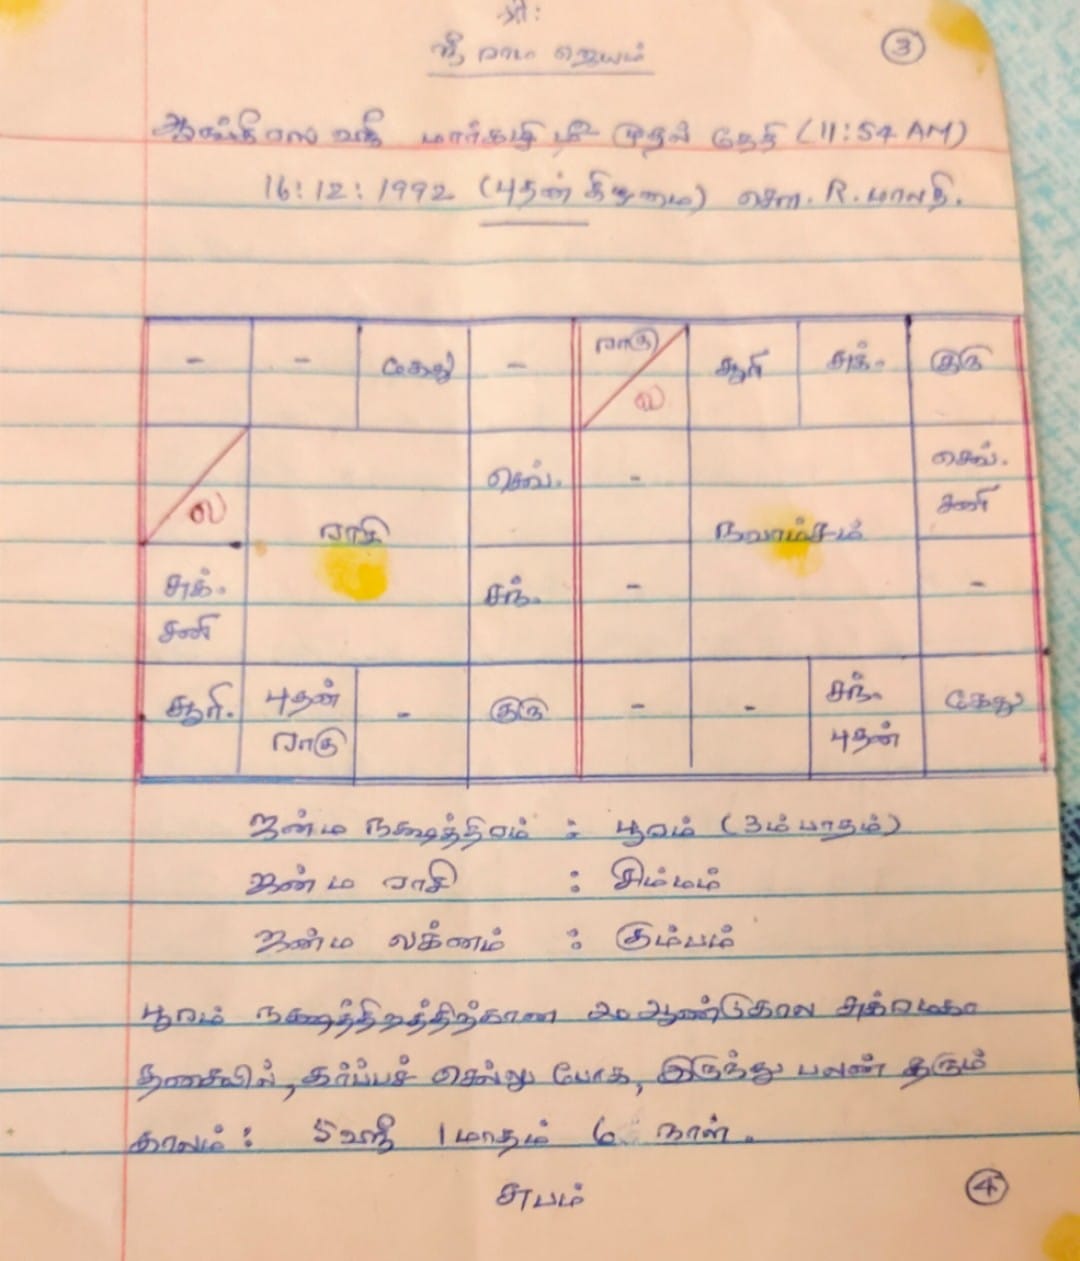 ஸ்ரீ:
ஸ்ரீ ராம ஜெயம்
3
ஆங்கீரஸ வருஷ மார்கழி மீ முதல் தேதி (11:54 AM)
16:12:1992 (புதன் கிழமை) சௌ. R. மாலதி.
- - கேது - ராகு ல சூரி சுக். குரு
ல செவ். - செவ். சனி
ராசி நவாம்சம்
சுக். சனி சந். - -
சூரி. புதன் ராகு - குரு - - சந். புதன் கேது
ஜன்ம நக்ஷத்திரம் : பூரம் (3ம் பாதம்)
ஜன்ம ராசி : சிம்மம்
ஜன்ம லக்னம் : கும்பம்
பூரம் நக்ஷத்திரத்திற்கான 20 ஆண்டுகால சுக்ரமகா
தசையில், கர்ப்பச் செல்லு போக, இருந்து பலன் தரும்
காலம் : 5 வரு 1 மாதம் 6 நாள்.
சுபம்
4